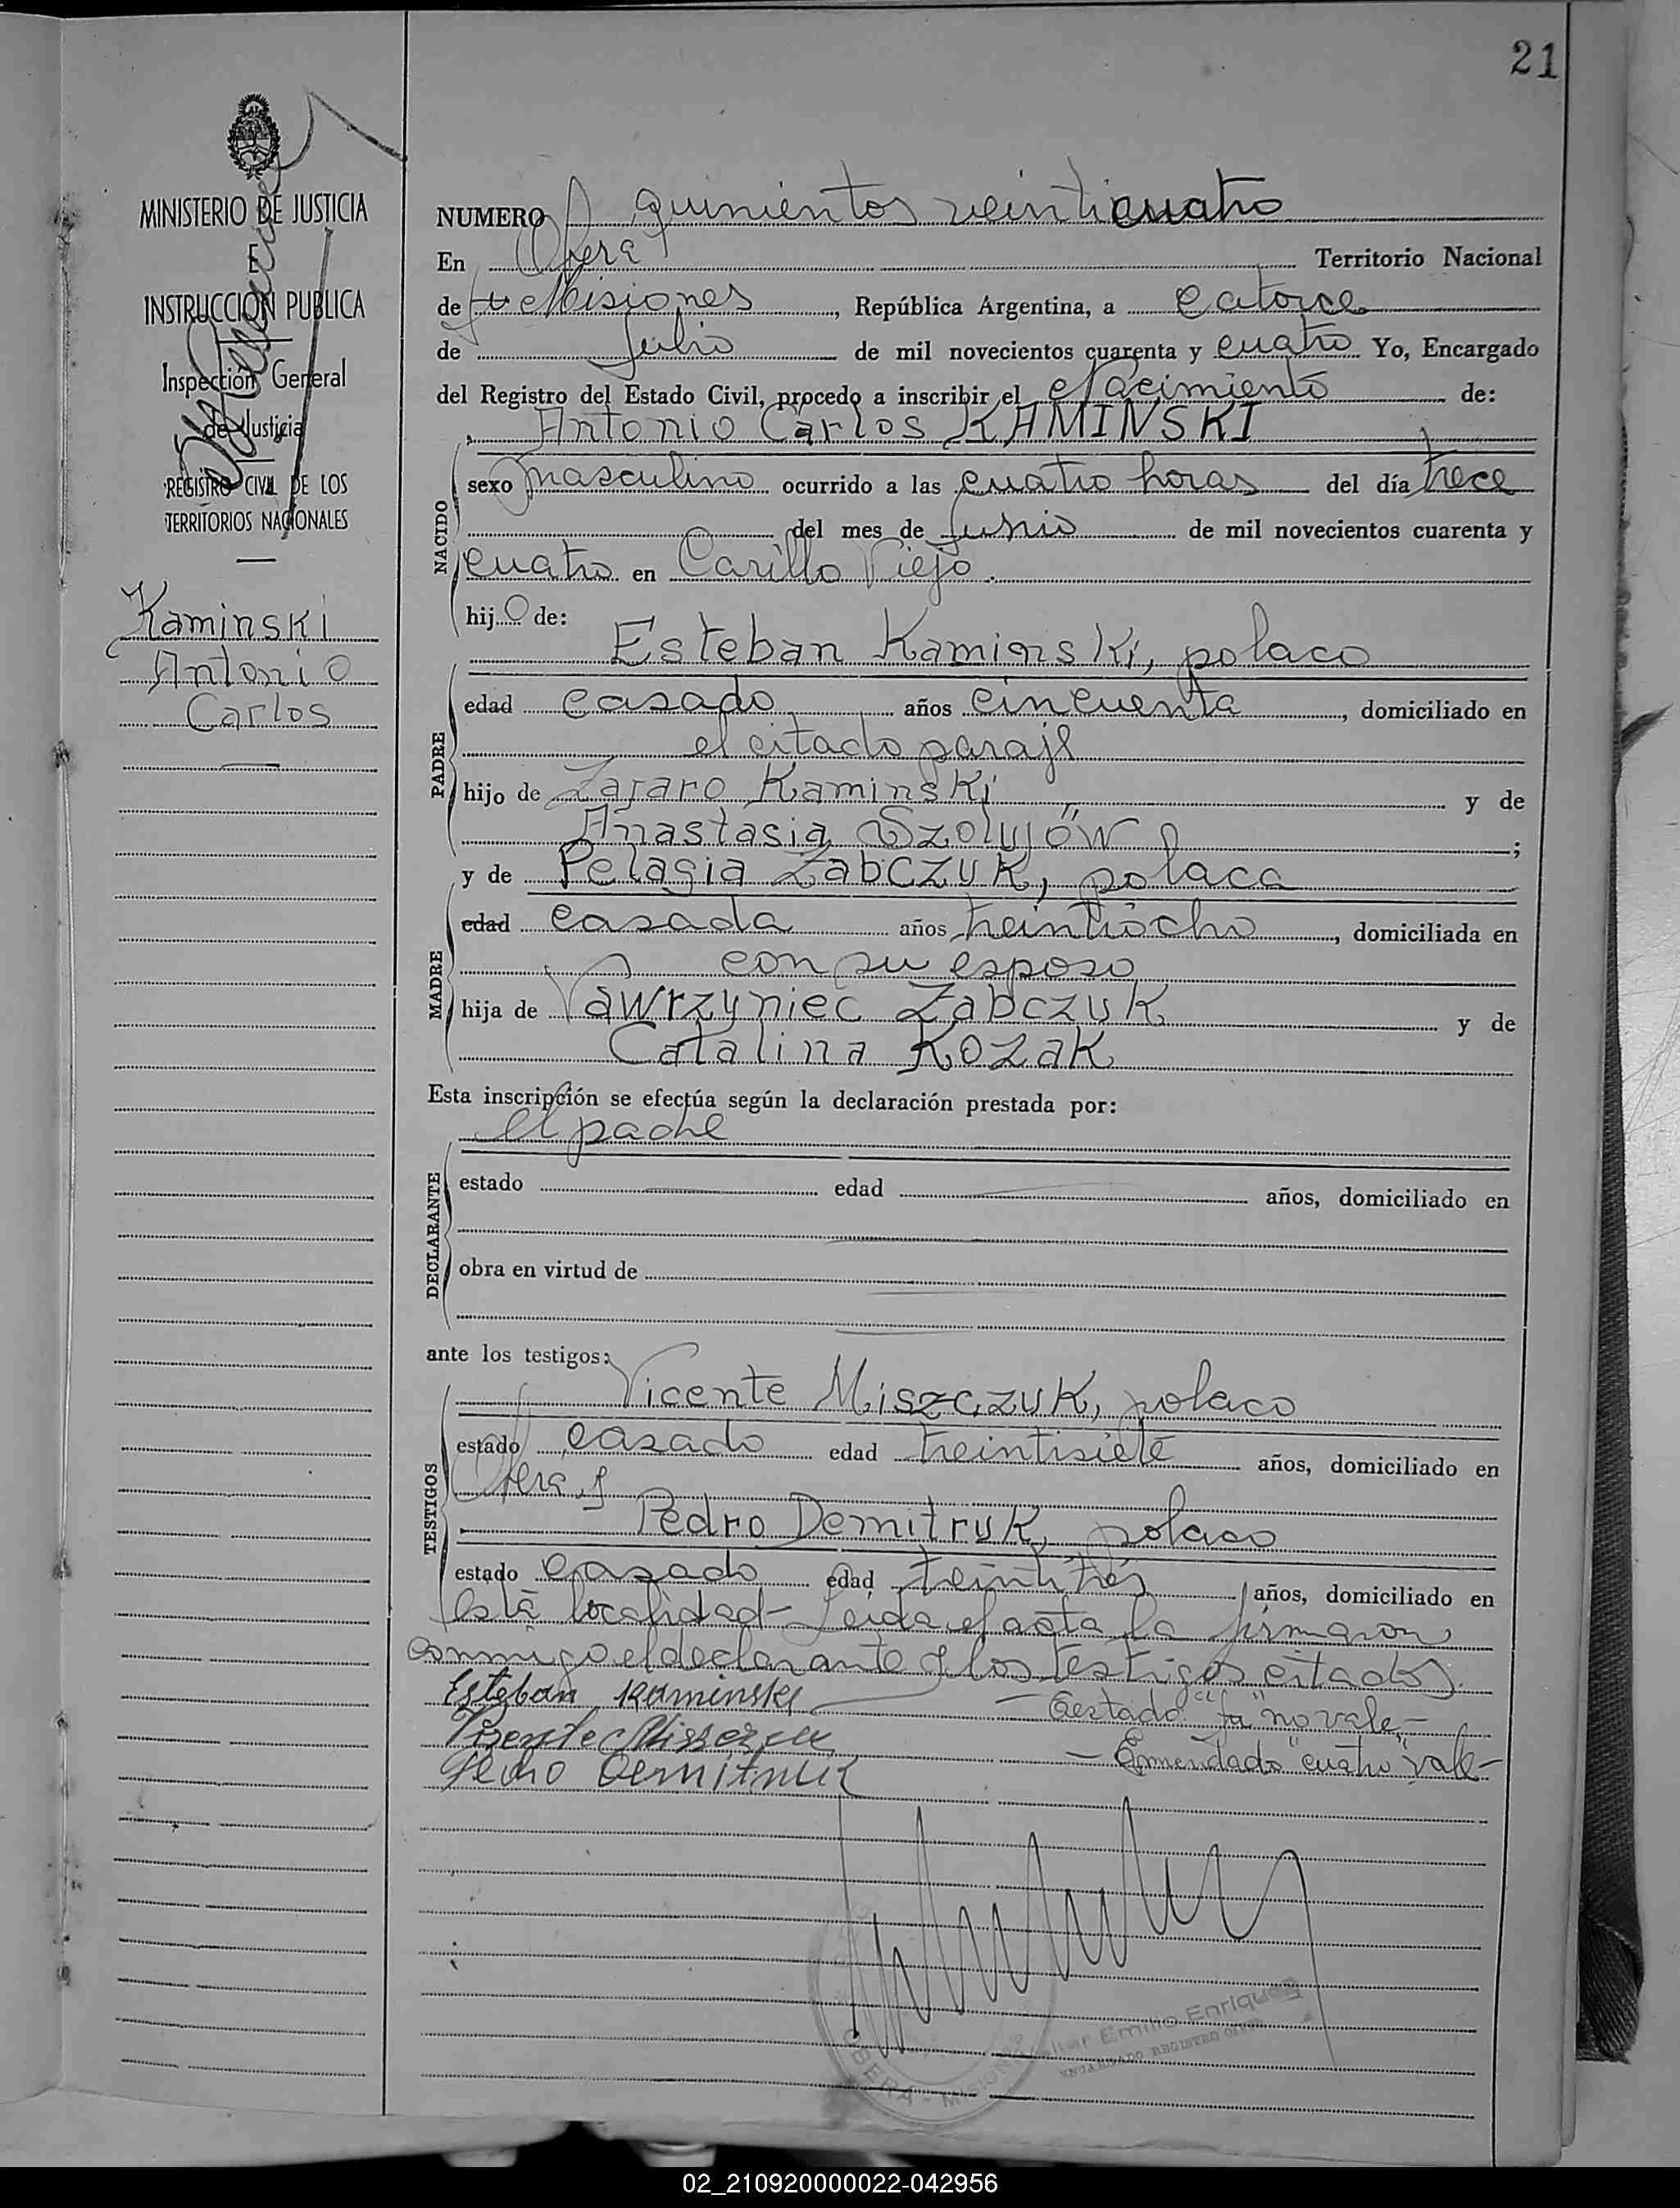 21
MINISTERIO DE JUSTICIA
E
INSTRUCCION PUBLICA
Inspección General
de Justicia
REGISTRO CIVIL DE LOS
TERRITORIOS NACIONALES
Kaminski
Antonio
Carlos
NUMERO quinientos veinticuatro
En Oberá Territorio Nacional
de Misiones, República Argentina, a catorce
de Julio de mil novecientos cuarenta y cuatro Yo, Encargado
del Registro del Estado Civil, procedo a inscribir el nacimiento de:
Antonio Carlos KAMINSKI
NACIDO
sexo masculino ocurrido a las cuatro horas del día trece
del mes de Junio de mil novecientos cuarenta y
cuatro en Carillo Viejo.
hijo de:
Esteban Kaminski, polaco
PADRE
edad casado años cincuenta, domiciliado en
el citado paraje
hijo de Zajaro Kaminski y de
Anastasia ;
y de Pelagia Zabczyk, polaca
MADRE
edad casada años treintiocho, domiciliada en
con su esposo
hija de Vawrzyniec Zabczuk y de
Catalina Kozak
Esta inscripción se efectúa según la declaración prestada por:
el padre
DECLARANTE
estado edad años, domiciliado en
obra en virtud de
ante los testigos:
Vicente Miszczuk, polaco
TESTIGOS
estado casado edad treintisiete años, domiciliado en
Oberá y
Pedro Demitruk, polaco
estado casado edad treintitrés años, domiciliado en
esta localidad- Leida el acta la firmaron
conmigo el declarante y los testigos citados.
Esteban Kaminski
- Testado: "fu" no vale-
Pedro Demitruk
- Enmendado "cuatro" vale-
OBERÁ - MISIONES
Emilio Enriquez
ENCARGADO REGISTRO CIVIL
02_210920000022-042956